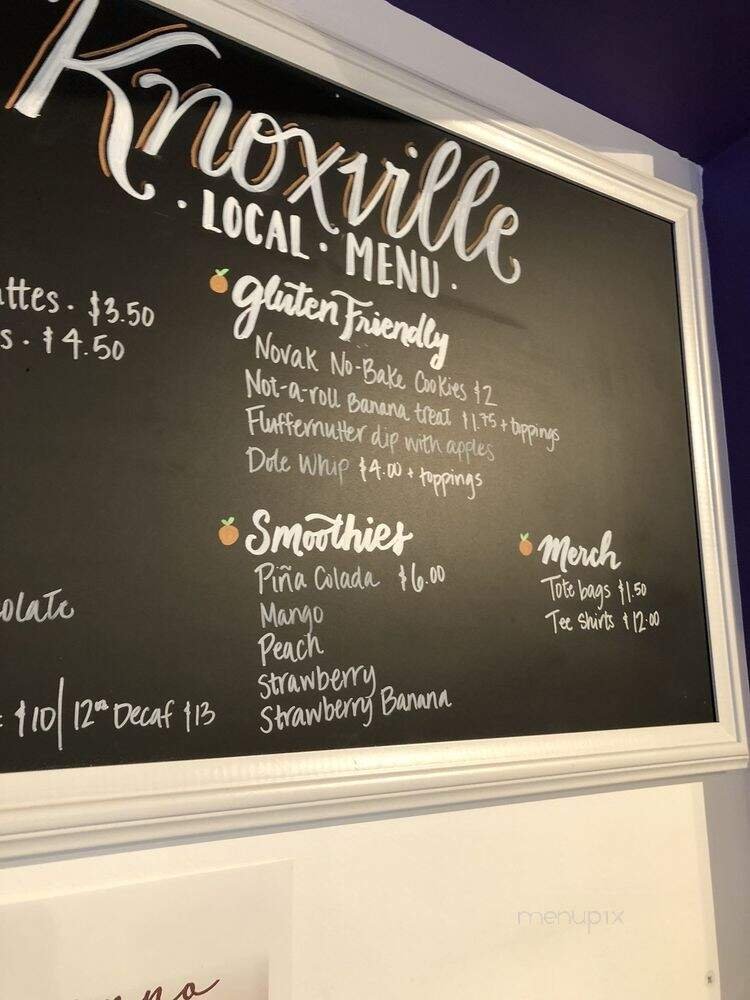 Knoxville
· LOCAL · MENU ·
ttes · $3.50
s · $4.50
olate
$10/ 12oz Decaf $13
Gluten Friendly
Novak No-Bake Cookies $2
Not-a-roll Banana treat $1.75 + toppings
Fluffernutter dip with apples
Dole Whip $4.00 + toppings
Smoothies
Piña Colada $6.00
Mango
Peach
Strawberry
Strawberry Banana
Merch
Tote bags $1.50
Tee Shirts $12.00
menupix